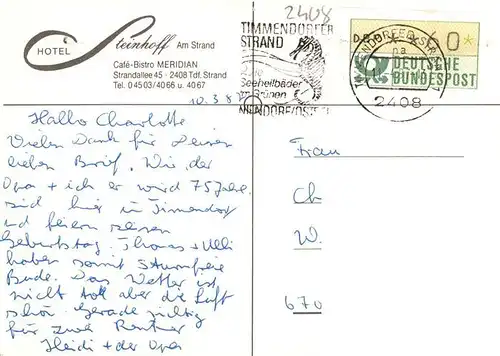 2408
HOTEL Steinhoff Am Strand
Café-Bistro MERIDIAN
Strandallee 45 · 2408 Tdf. Strand
Tel. 04503/4066 u. 4067
TIMMENDORFER
STRAND
Seeheilbäder
Grünen
NIENDORF/OSTSEE
TIMMENDORFER STRAND
2408
60
DEUTSCHE
BUNDESPOST
10.3.87
Hallo Charlotte
Vielen Dank für Deinen
lieben Brief. Wir, der
Opa + ich er wird 75 Jahre
sind hier in Timmendorf
und feiern seinen
Geburtstag. Thomas + Ulli
haben somit sturmfreie
Bude. Das Wetter ist
nicht toll aber die Luft
schön. Gerade richtig
für zwei Rentner
Heidi + der Opa
Frau
Ch
W.
670